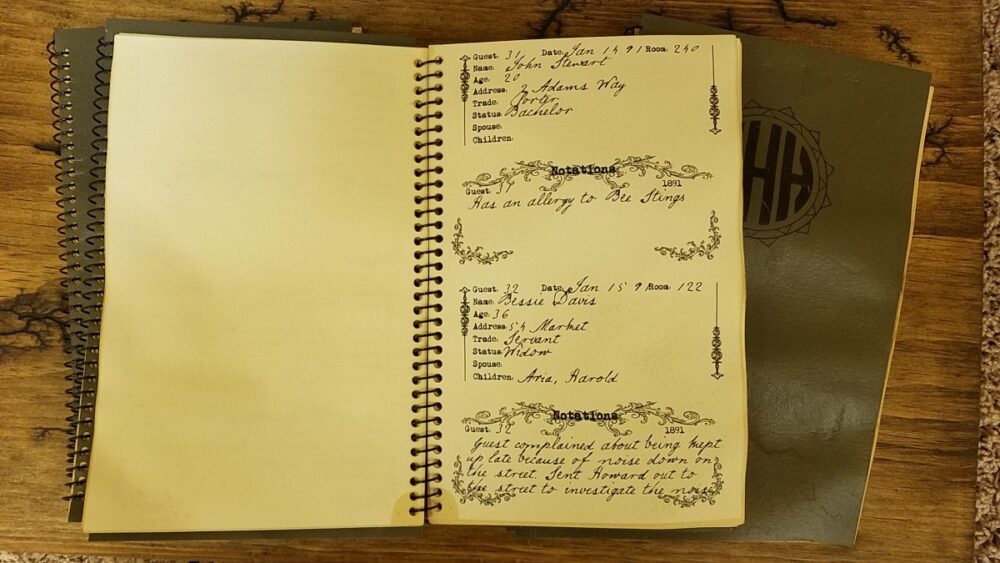 Guest: 31 Date: Jan 14 91 Room: 240
Name: John Stewart
Age: 20
Address: 2 Adams Way
Trade: Porter
Status: Bachelor
Spouse:
Children:
Notations
Guest: 31 1891
Has an allergy to Bee Stings
Guest: 32 Date: Jan 15 91 Room: 122
Name: Bessie Davis
Age: 36
Address: 54 Market
Trade: Servant
Status: Widow
Spouse:
Children: Aria, Harold
Notations
Guest: 32 1891
Guest complained about being kept
up late because of noise down on
the street. Sent Howard out to
the street to investigate the noise
HH